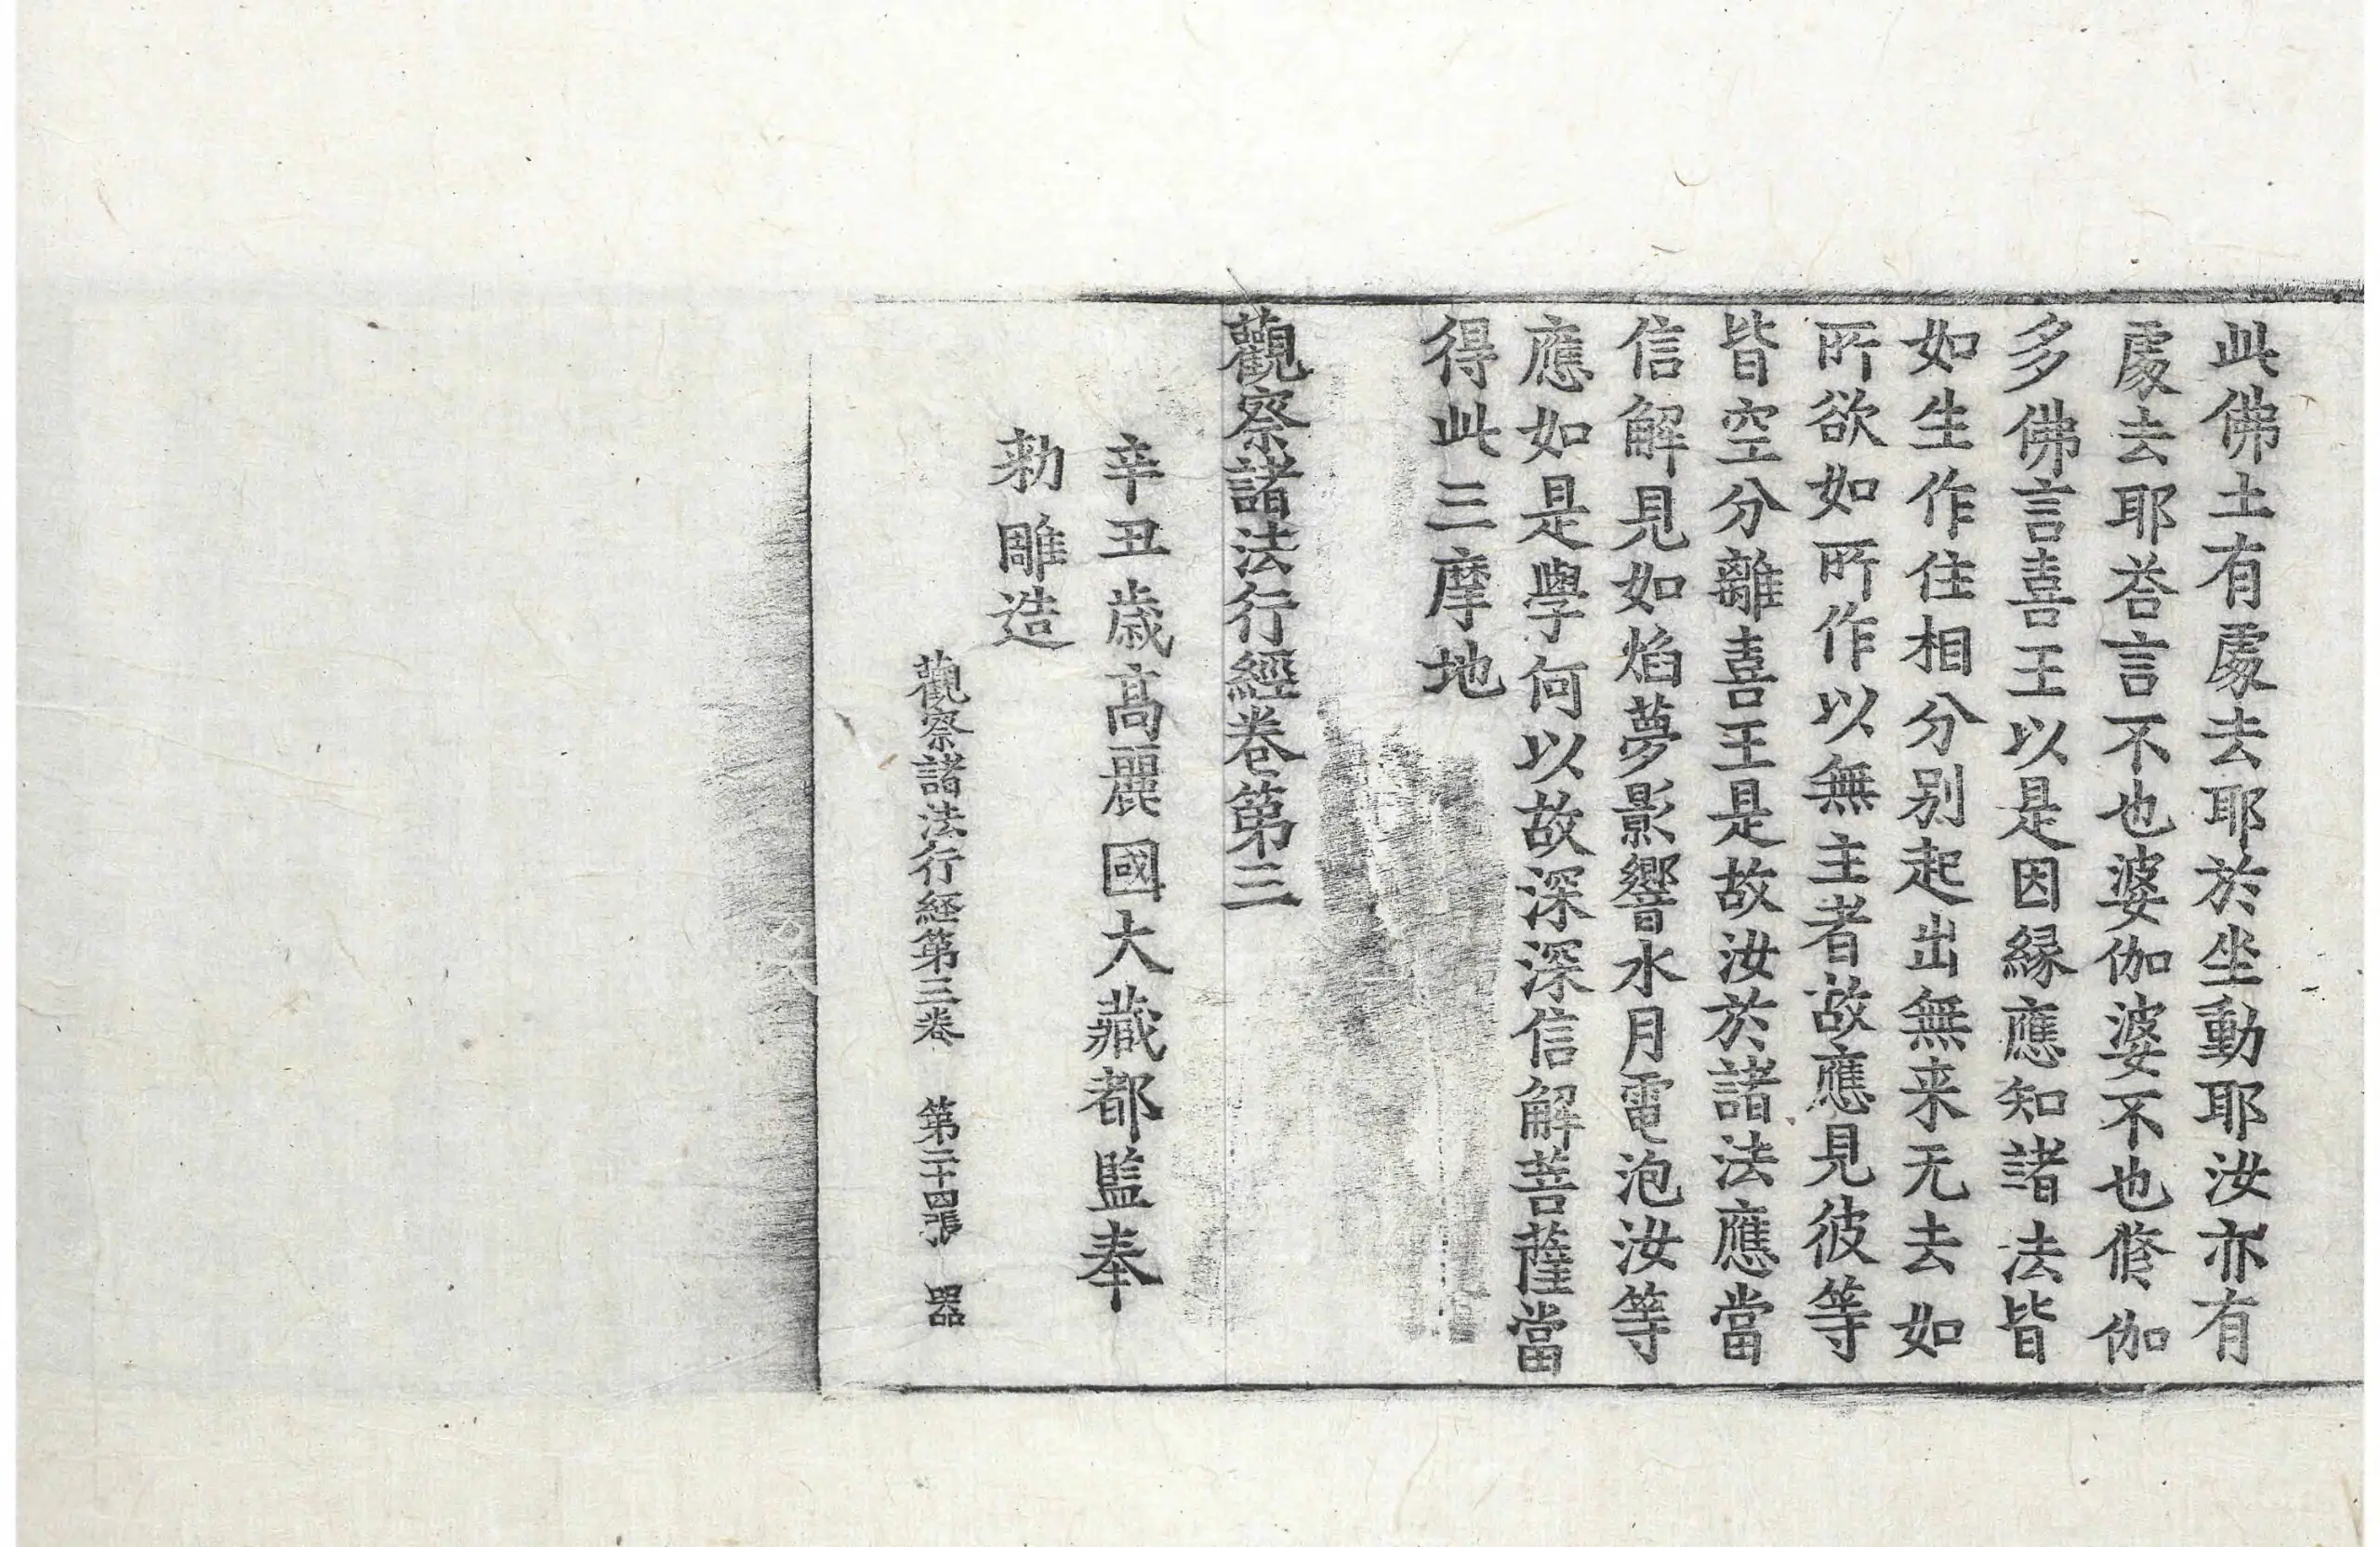 此佛土有處去耶於坐動耶汝亦有
處去耶荅言不也婆伽婆不也修伽
多佛言喜王以是因緣應知諸法皆
如生作住相分別起出無来无去如
所欲如所作以無主者故應見彼等
皆空分離喜王是故汝於諸法應當
信解見如焰夢影響水月電泡汝等
應如是學何以故深深信解菩薩當
得此三摩地
觀察諸法行經卷第三
辛丑歲高麗國大藏都監奉
勅雕造
觀察諸法行経第三卷 第二十四張 器